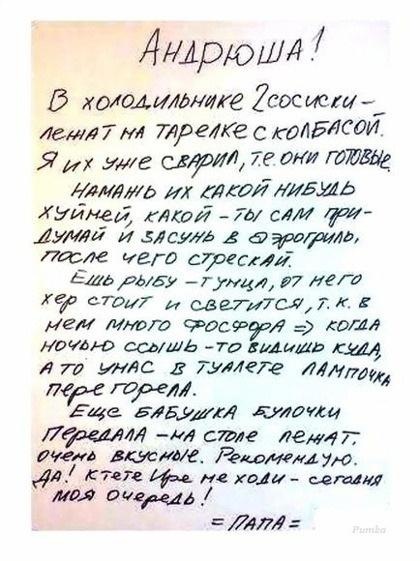 Андрюша!
В холодильнике 2 сосиски –
лежат на тарелке с колбасой.
Я их уже сварил, т.е. они готовые.
Намажь их какой нибудь
хуйней, какой – ты сам при-
думай и засунь в аэрогриль,
после чего стрескай.
Ешь рыбу – тунца, от него
хер стоит и светится, т.к. в
нем много фосфора => когда
ночью ссышь – то видишь куда,
а то у нас в туалете лампочка
перегорела.
Еще бабушка булочки
передала – на столе лежат,
очень вкусные. Рекомендую.
Да! К тете Ире не ходи – сегодня
моя очередь!
= Папа =
Pumba